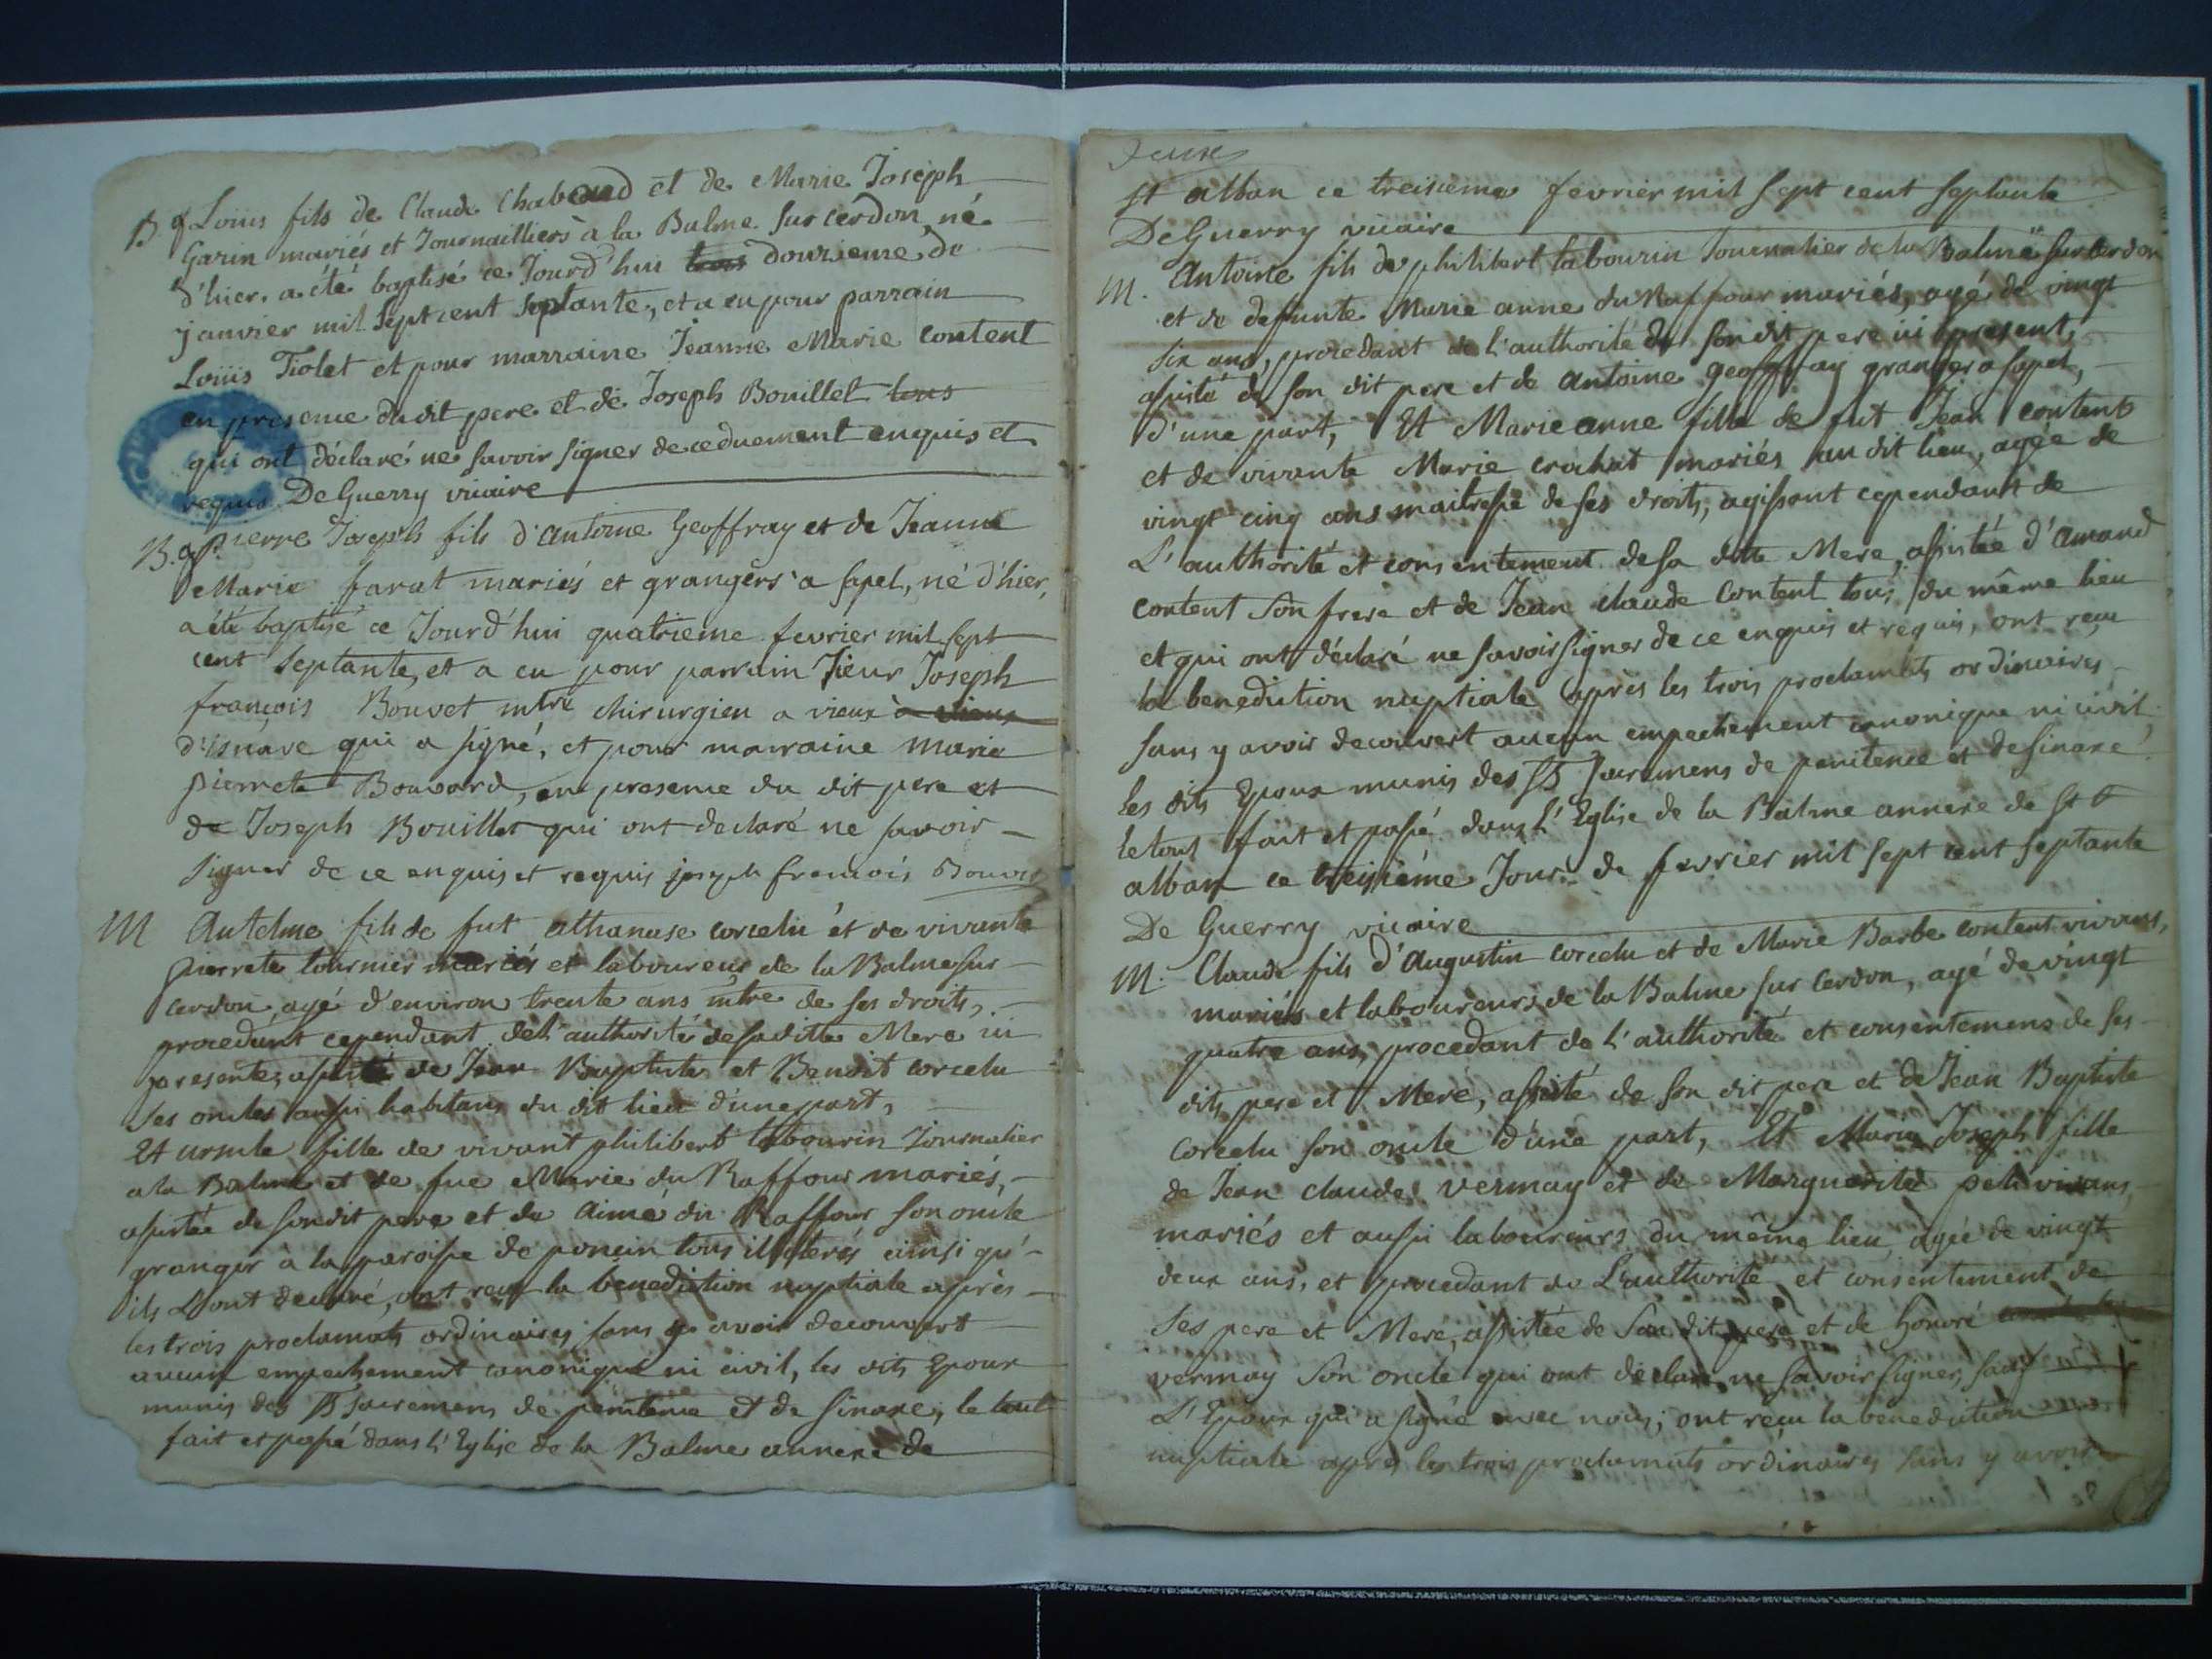 B. g. Loüis fils de Claude Chabaud et de Marie Joseph
Garin mariés et Journailliers à la Balme sur cerdon, né
d'hier, a été baptisé ce Jourd'hui douzieme de
janvier mil sept cent septante, et a eu pour parrain
Loüis Tiolet et pour marraine Jeanne Marie Content
en presence du dit pere et de Joseph Bouillet tous
qui ont déclaré ne savoir signer de ce duement enquis et
requis DeGuerry vicaire
B. g. Pierre Joseph fils d'antoine Geoffray et de Jeanne
Marie farat mariés et grangers a sapel, né d'hier,
a été baptisé ce Jourd'hui quatrieme fevrier mil sept
cent septante, et a eu pour parrain sieur Joseph
françois Bouvet mtre chirurgien a vieux a vieux
d'isnave qui a signé, et pour marraine marie
pierrete Bouvard, en presence du dit pere et
de Joseph Bouillet qui ont declaré ne savoir
signer de ce enquis et requis joseph francois Bouvet
M Antelme fils de fut athanase corcelu et de vivante
pierrete tournier mariés et laboureurs de la Balme sur
cerdon, agé d'environ trente ans mtre de ses droits,
procedant cependant de l'authorité de sa ditte Mere ici
presente, assisté de Jean Baptiste et Benoit corcelu
ses oncles aussi habitans du dit lieu d'une part,
Et ursule fille de vivant philibert labourin Journalier
a la Balme et de fue Marie du Raffour mariés,
assistée de son dit pere et de Aimé du Raffour son oncle
granger à la paroisse de poncin tous illiterés ainsi qu'
ils L'ont declaré, ont reçu la benediction nuptiale après
les trois proclamats ordinaires sans y avoir decouvert
aucun empechement canonique ni civil, les dits Epoux
munis des SS sacremens de penitence et de sinaxe, le tout
fait et passé dans l'Eglise de la Balme annexe de
st alban ce treisieme fevrier mil sept cent septante
DeGuerry vicaire
M. Antoine fils de philibert labourin Journalier de la Balme sur Cerdon
et de defunte Marie anne du Raffour mariés, agé de vingt
six ans, procedant de l'authorité de son dit pere ici present,
assisté de son dit pere et de Antoine geoffray granger a sapel,
d'une part, Et Marie anne fille de fut Jean content
et de vivante Marie crochat mariés au dit lieu, agée de
vingt cinq ans maitresse de ses droits, agissant cependant de
L'authorité et consentement de sa ditte Mere, assistée d'amand
content son frere et de Jean claude Content tous du même lieu
et qui ont déclaré ne savoir signer de ce enquis et requis, ont reçu
la benediction nuptiale après les trois proclamats ordinaires
sans y avoir decouvert aucun empechement canonique ni civil
les dits Epoux munis des SS sacremens de penitence et de sinaxe
le tout fait et passé dans l'Eglise de la Balme annexe de St
alban ce treisiéme Jour de fevrier mil sept cent septante
De Guerry vicaire
M. Claude fils d'Augustin corcelu et de Marie Barbe content vivans,
mariés et laboureurs de la Balme sur Cerdon, agé de vingt
quatre ans, procedant de l'authorité et consentemens de ses
dits pere et Mere, assisté de son dit pere et de Jean Baptiste
corcelu son oncle d'une part, Et Marie Joseph fille
de Jean claude vermay et de Marguerite vivans,
mariés et aussi laboureurs du même lieu, agée de vingt
deux ans, et procedant de L'authorité et consentement de
ses pere et Mere, assistée de son dit pere et de honoré
vermay son oncle qui ont declaré ne savoir signer, sauf
L'Epoux qui a signé avec nous; ont reçu la benediction
nuptiale après les trois proclamats ordinaires sans y avoir